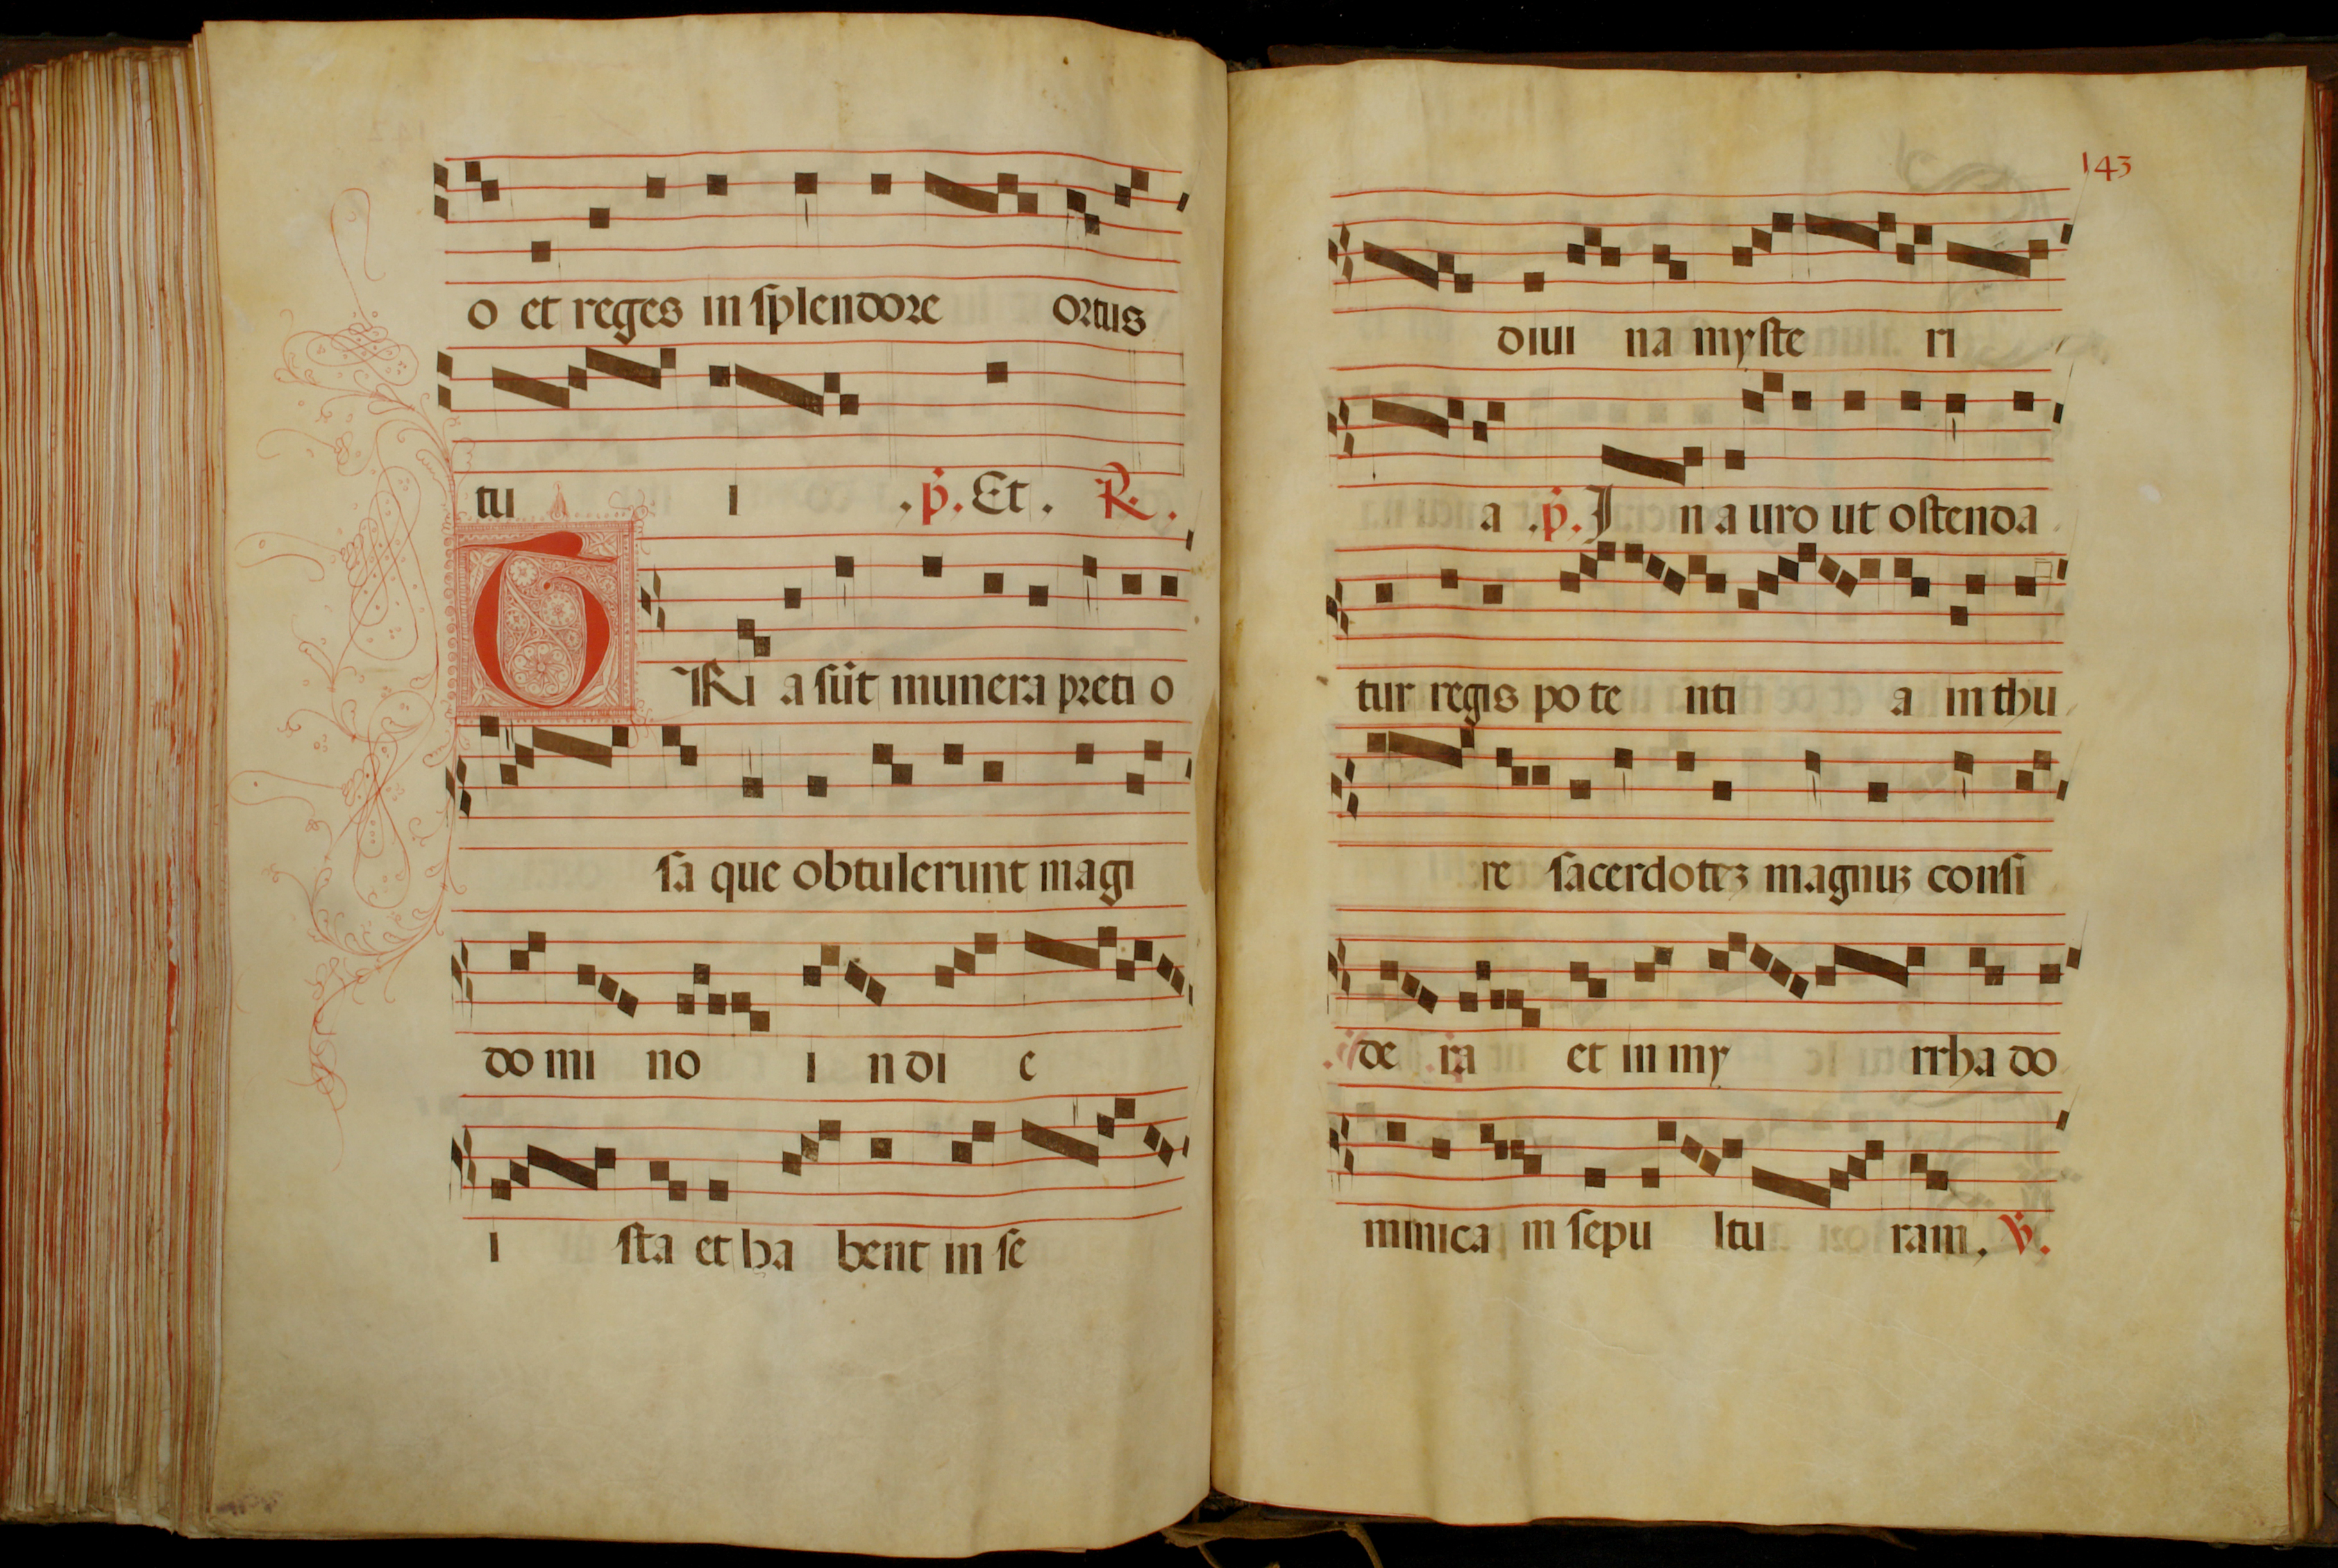 o et reges in splendore ortus
tu i .p. Et. R.
TRi a sūt munera preti o
sa que obtulerunt magi
do mi no i n di e
i sta et ha bent in se
143
diui na myste ri
a .p. I n a uro ut ostenda
tur regis po te nti a in thu
re sacerdotez magnuz consi
de ra et in my rrha do
minica in sepu ltu ram. V.